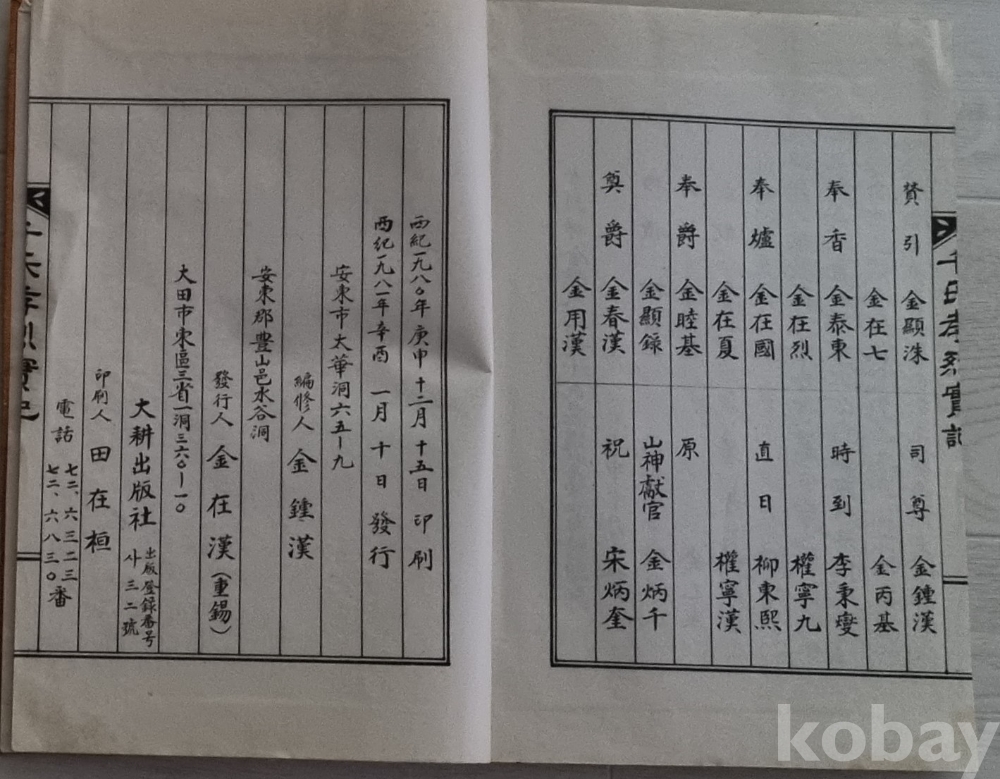 千氏孝烈實記
贊引 金顯洙 司尊 金鍾漢
金在七 金丙基
奉香 金泰東 時到 李秉燮
金在烈 權寧九
奉爐 金在國 直日 柳東熙
金在夏 權寧漢
奉爵 金睦基 原
金顯錄 山神獻官 金炳千
奠爵 金春漢 祝 宋炳奎
金用漢
西紀一九八〇年庚申十二月十五日印刷
西紀一九八一年辛酉一月十日發行
安東市太華洞六五ー九
編修人 金鍾漢
安東郡豊山邑水谷洞
發行人 金在漢(重錫)
大田市東區三省一洞三六〇ー一〇
大耕出版社 出版登録番号 사三二號
印刷人 田在桓
電話 七二、六三二三
七二、六八三〇番
千氏孝烈實記
kobay